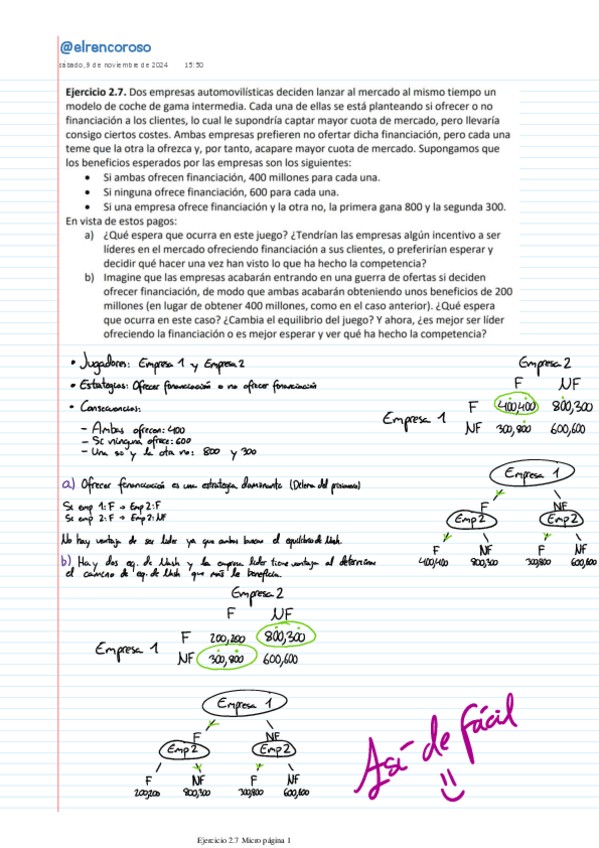 @elrencoroso
sábado, 9 de noviembre de 2024 15:50
Ejercicio 2.7. Dos empresas automovilísticas deciden lanzar al mercado al mismo tiempo un
modelo de coche de gama intermedia. Cada una de ellas se está planteando si ofrecer o no
financiación a los clientes, lo cual le supondría captar mayor cuota de mercado, pero llevaría
consigo ciertos costes. Ambas empresas prefieren no ofertar dicha financiación, pero cada una
teme que la otra la ofrezca y, por tanto, acapare mayor cuota de mercado. Supongamos que
los beneficios esperados por las empresas son los siguientes:
• Si ambas ofrecen financiación, 400 millones para cada una.
• Si ninguna ofrece financiación, 600 para cada una.
• Si una empresa ofrece financiación y la otra no, la primera gana 800 y la segunda 300.
En vista de estos pagos:
a) ¿Qué espera que ocurra en este juego? ¿Tendrían las empresas algún incentivo a ser
líderes en el mercado ofreciendo financiación a sus clientes, o preferirían esperar y
decidir qué hacer una vez han visto lo que ha hecho la competencia?
b) Imagine que las empresas acabarán entrando en una guerra de ofertas si deciden
ofrecer financiación, de modo que ambas acabarán obteniendo unos beneficios de 200
millones (en lugar de obtener 400 millones, como en el caso anterior). ¿Qué espera
que ocurra en este caso? ¿Cambia el equilibrio del juego? Y ahora, ¿es mejor ser líder
ofreciendo la financiación o es mejor esperar y ver qué ha hecho la competencia?
• Jugadores: Empresa 1 y Empresa 2
• Estrategias: Ofrecer financiación o no ofrecer financiación
• Consecuencias:
– Ambas ofrecen: 400
– Si ninguna ofrece: 600
– Una sí y la otra no: 800 y 300
Empresa 2
F NF
Empresa 1 F 400,400 800,300
NF 300,800 600,600
a) Ofrecer financiación es una estrategia dominante (Dilema del prisionero)
Si emp 1: F → Emp 2: F
Si emp 2: F → Emp 2: NF
No hay ventaja de ser lider ya que ambas buscan el equilibrio de Nash.
Empresa 1
F NF
Emp 2 Emp 2
F NF F NF
400,400 800,300 300,800 600,600
b) Hay dos eq. de Nash y la empresa lider tiene ventaja al determinar
el camino de eq. de Nash que más le beneficia.
Empresa 2
F NF
Empresa 1 F 200,200 800,300
NF 300,800 600,600
Empresa 1
F NF
Emp 2 Emp 2
F NF F NF
200,200 800,300 300,800 600,600
Así de fácil
Ejercicio 2.7 Micro página 1